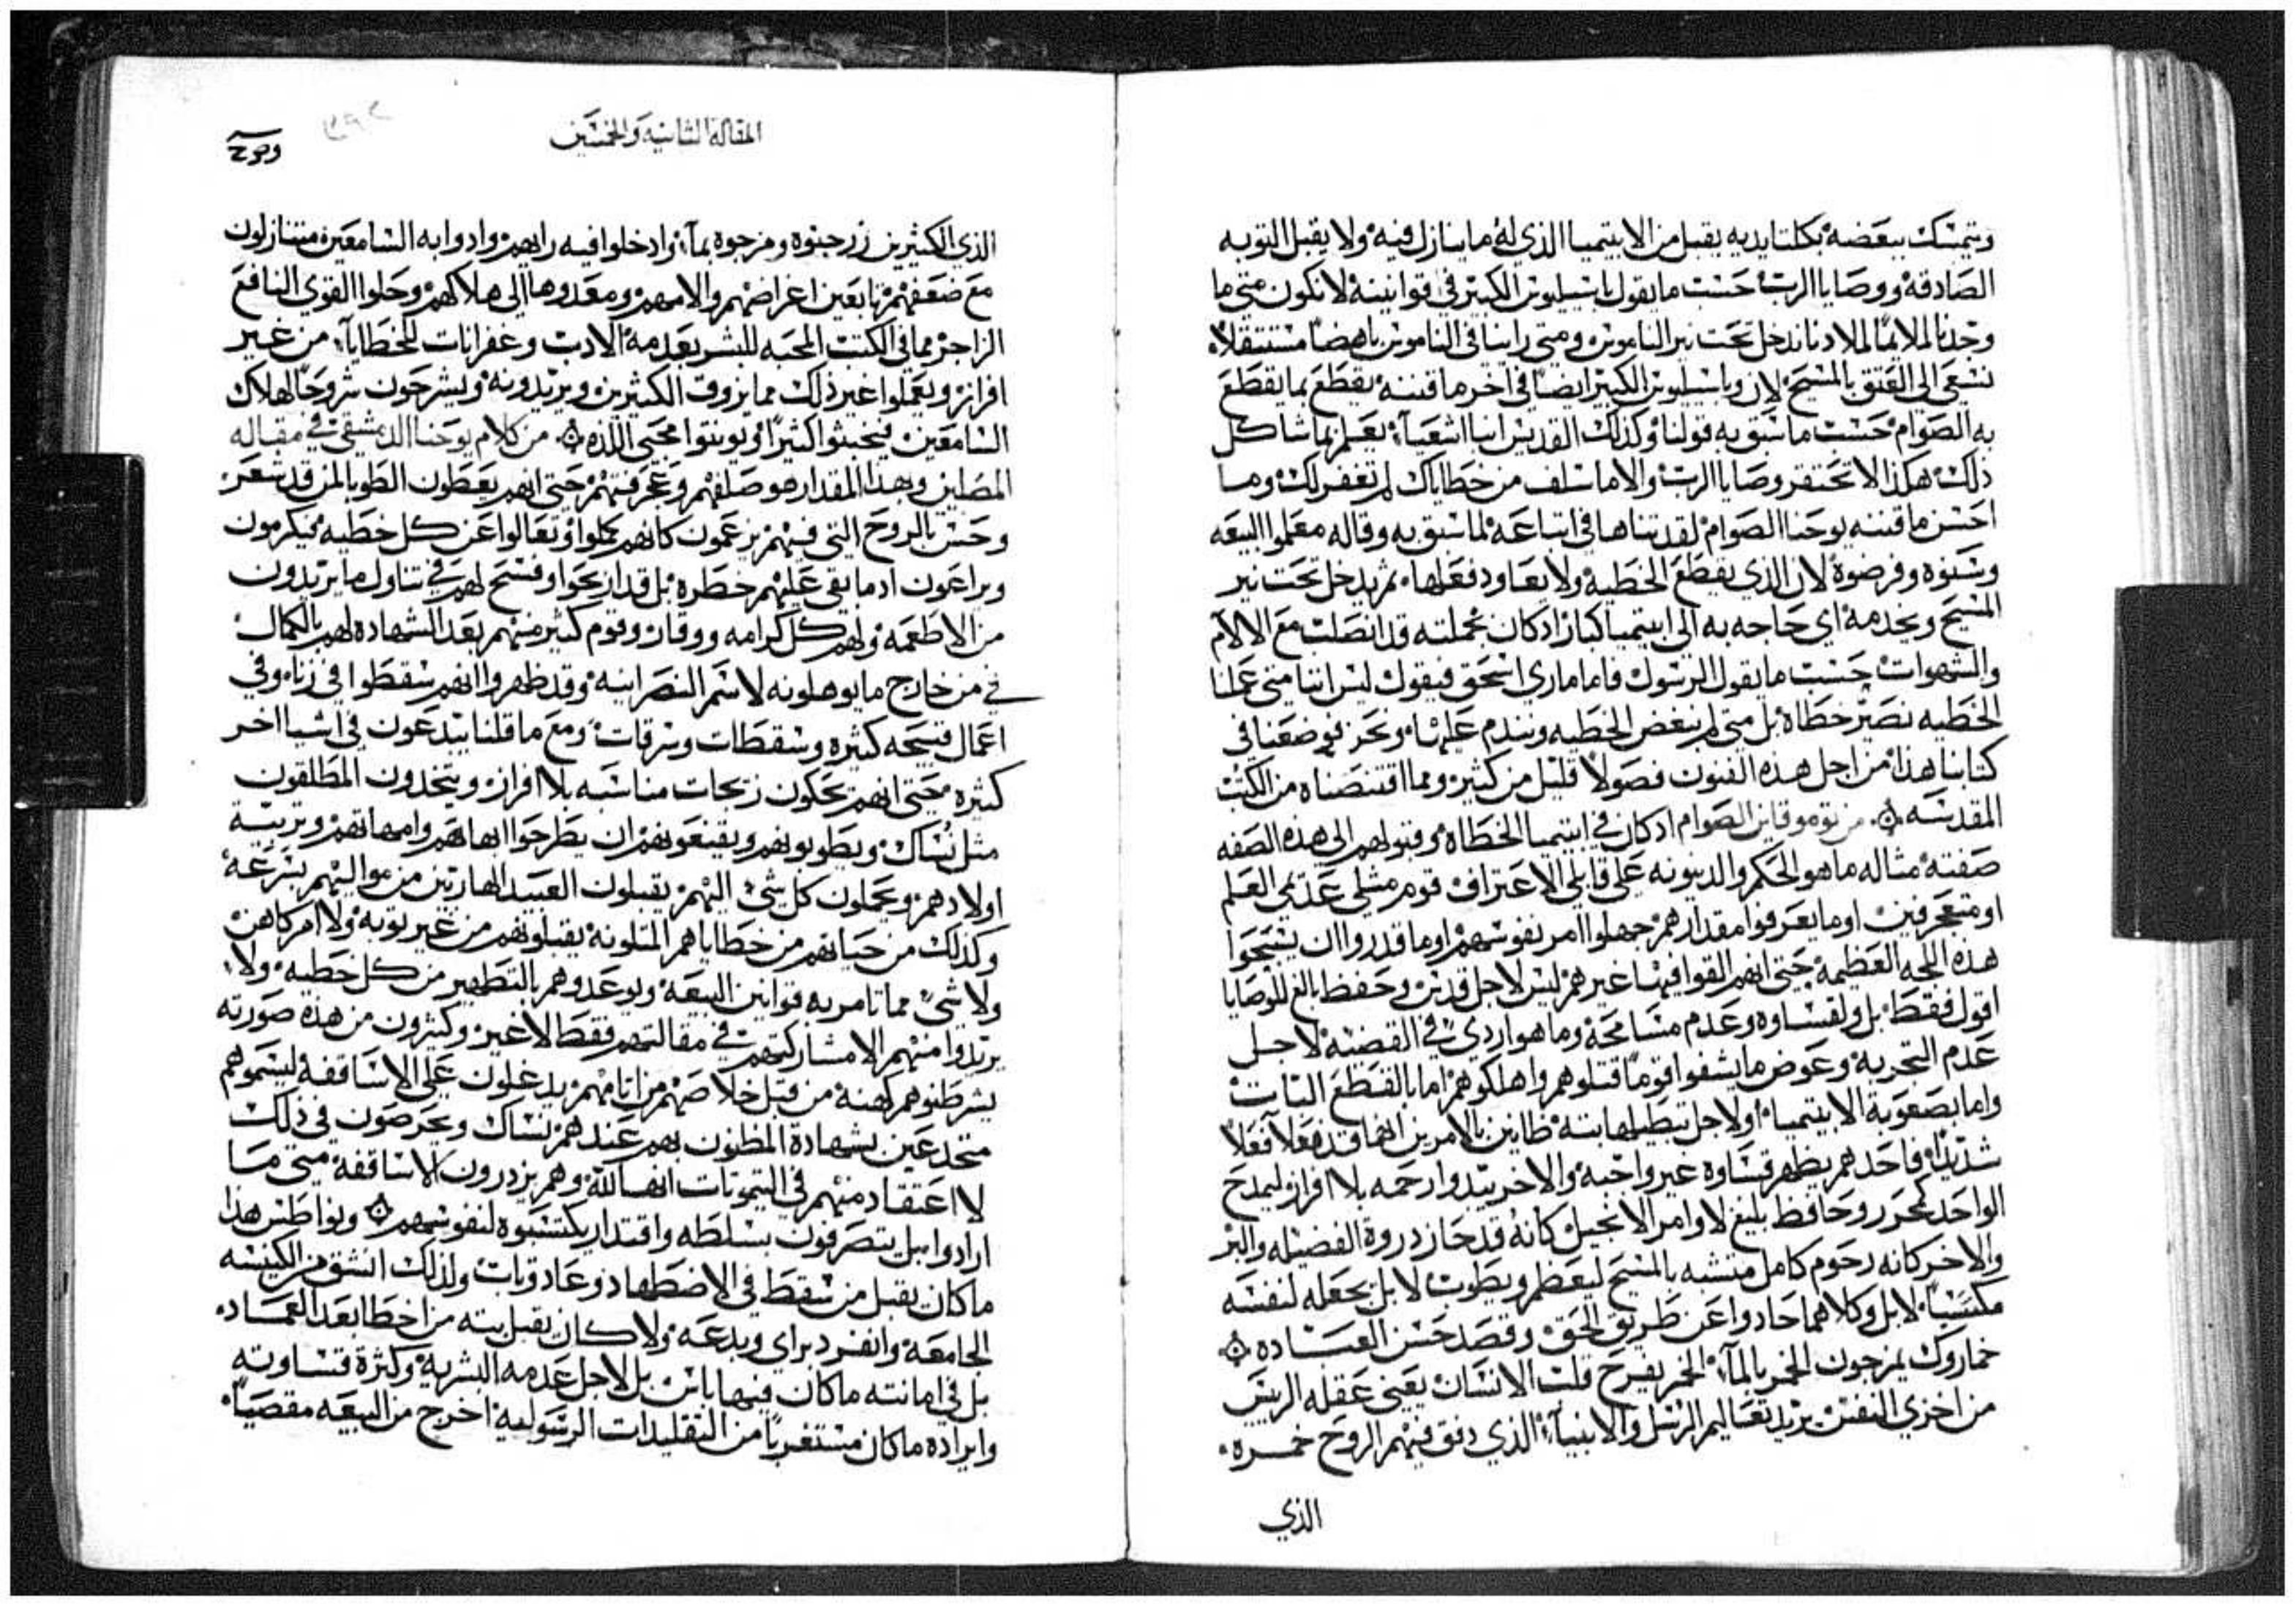 ويتمسك ببعضه بكلتا يديه يقبل من الابتيميا الذي له ما ينازل فيه ولا يقبل التوبه
الصادقه ووصايا الرب حسب ما يقول باسيليوس الكبير في قوانينه لا نكون متى ما
وجدنا لملايمًا لملادنا ندخل تحت نير الناموس ومتى راينا في الناموس باهضًا مستثقلاً
نسعى الى العتق بالمسيح لان وباسيليوس الكبير ايضًا في اخر ما قننه يقطع بما يقطع
به الصوام حسب ما سبق به قولنا وكذلك القديس انبا اشعيآ يعلم بما شاكل
ذلك هكذا لا تحتقر وصايا الرب والا ما سلف من خطاياك لم تغفر لك وما
احسن ما قننه يوحنا الصوام لقد تناها في اتباعه لما سبق به وقاله معلموا البيعه
وسنوه وفرضوه لان الذي يقطع الخطيه ولا يعاود فعلها ثم يدخل تحت نير
المسيح ويخدمه اي حاجه به الى ابتيميا كبار اذ كان بجملته قد انصلب مع الالام
والشهوات حسب ما يقول الرسول فاما ماري اسحق فيقول ليس اننا متى عملنا
الخطيه نصير خطاه بل متى لم نبغض الخطيه ونندم عليها ونحن فوضعنا في
كتابنا هذا من اجل هذه الفنون فصولاً قليل من كثير ومما اقتنصناه من الكتب
المقدسه من نوموقانن الصوام اذ كان في ابتيميا الخطاه وقبولهم الى هذه الصفه
صفته مثاله ما هو الحكم والدينونه على قابلي الاعتراف قوم مثلي عديمي العلم
او متعجرفين او ما يعرفوا مقدارهم جهلوا امر نفوسهم او ما قدروا ان يسبحوا
هذه اللجه العظيمه حتى انهم القوا فيها غيرهم ليس لاجل قدس وحفظ بالغ للوصايا
اقول فقط بل ولقساوه وعدم مسامحه وما هو اردى في القضيه لاجل
عدم التجربه وعوض ما يشفوا قومًا قتلوهم واهلكوهم اما بالقطع البتات
واما بصعوبة الابتيميا او لاجل تبطيلها بته ظانين بالامرين انهما قد فعلا فعلاً
شديدًا فاحدهم يظهر قساوه غير واجبه والاخر يبدوا رحمه بلا افراز ليمدح
الواحد كمحرر وحافظ بليغ لاوامر الانجيل كانه قد حاز دروة الفضيله والبر
والاخر كانه رحوم كامل متشبه بالمسيح ليعظم ويطوب لا بل يجعله لنفسه
مكسبًا لا بل وكلاهما حادوا عن طريق الحق وقصد حسن العباده
خماروك يمزجون الخمر بالمآ الخمر يفرح قلب الانسان يعني عقله الريس
من اخزي النفس يريد تعاليم الرسل والانبيآ الذي دفق فيهم الروح خمره
الذي
المقاله الثانيه والخمسين
الذي الكثيرين زرجنوه ومزجوه بمآ وادخلوا فيه رايهم وادوا به السامعين متنازلون
مع ضعفهم تابعين اغراضهم والامهم ومعدوها الى هلاكهم وحلوا القوي النافع
الزاجر مما في الكتب المحبه للبشر بعدمه الادب وغفرانات للخطايآ من غير
افراز ويعملوا غير ذلك مما يزوق الكثيرين ويريدونه ويشرحون شروحًا لهلاك
السامعين فيخبثوا كثيرًا ويونتوا محبي اللذه من كلام يوحنا الدمشقي في مقاله
المصلين وبهذا المقدار هو صلفهم وعجرفتهم حتى انهم يعطون الطوبا لمن قد شعر
وحس بالروح التي فيهم يزعمون كانهم كملوا وتعالوا عن كل خطيه فيكرمون
ويراعون اد ما بقي عليهم خطره بل قد ارتحوا وفسح لهم في تناول ما يريدون
من الاطعمه ولهم كل كرامه ووقار وقوم كثير منهم بعد الشهاده لهم بالكمال
في من خارج ما يوهلونه لاسم النصرانيه وقد ظهروا انهم سقطوا في زناه وفي
اعمال قبيحه كثيره وسقطات وسرقات ومع ما قلنا يبدعون في اشيا اخر
كثيره حتى انهم يحكون زيجات مناسبه بلا افراز ويتخدون المطلقون
مثل نساك ويطوبونهم ويقنعونهم ان يطرحوا ابهاتهم وامهاتهم وتربية
اولادهم ويحملون كل شي اليهم يقبلون العبيد الهاربين من مواليهم بسرعه
وكذلك من حياتهم من خطاياهم المتلونه يقبلونهم من غير توبه ولا امر كاهن
ولا شي مما تامر به قوانين البيعه ويوعدوهم بالتطهير من كل خطيه ولا
يريدوا منهم الا مشاركتهم في مقالتهم فقط لا غير وكثيرون من هذه صورته
يشرطنوهم كهنه من قبل خلاصهم من اتامهم يدغلون على الاساقفه ليسموهم
متخدعين بشهادة المظنون بهم عندهم نساك ويحرصون في ذلك
لا اعتقاد منهم في التيموتات انها لله وهم يزدرون الاساقفه متى ما
ارادوا بل يتصرفون بسلطه واقتدار يكتسبوه لنفوسهم ونواطس هذا
ما كان يقبل من سقط في الاضطهاد وعاد وتاب ولذلك انشق من الكنيسه
الجامعه وانفرد براي وبدعه ولا كان يقبل بته من اخطا بعد العماد
بل في امانته ما كان فيها باس بل لاجل عدمه البشريه وكثرة قساوته
وايراده ما كان مستغربًا من التقليدات الرسوليه اخرج من البيعه مقصيًا